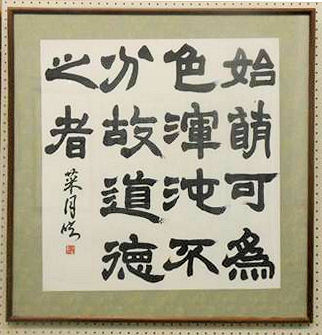 始萌可為
色渾沌不
分故道德
之者
菜月